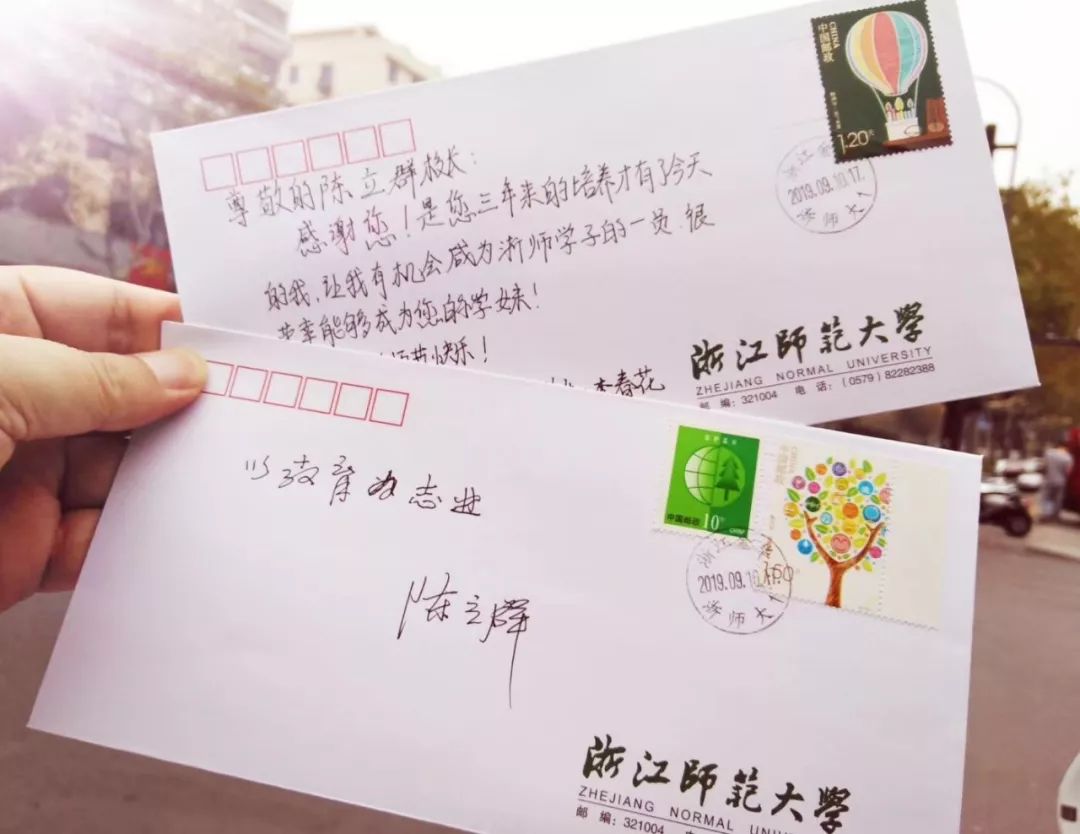 中国邮政
CHINA
1.20元
2019.09.10.17.
浙师大
尊敬的陈立群校长:
感谢您!是您三年来的培养才有了今天
的我,让我有机会成为浙师学子的一员.很
荣幸能够成为您的学妹!
快乐!
李春花
浙江師范大學
ZHEJIANG NORMAL UNIVERSITY
邮 编: 321004 电 话: (0579) 82282388
以教育为志业
陈立群
中国邮政 10分
CHINA
中国邮政
CHINA
2019.09.10
浙师大
浙江師范大學
ZHEJIANG NORMAL UNIVERSITY
邮 编: 321004